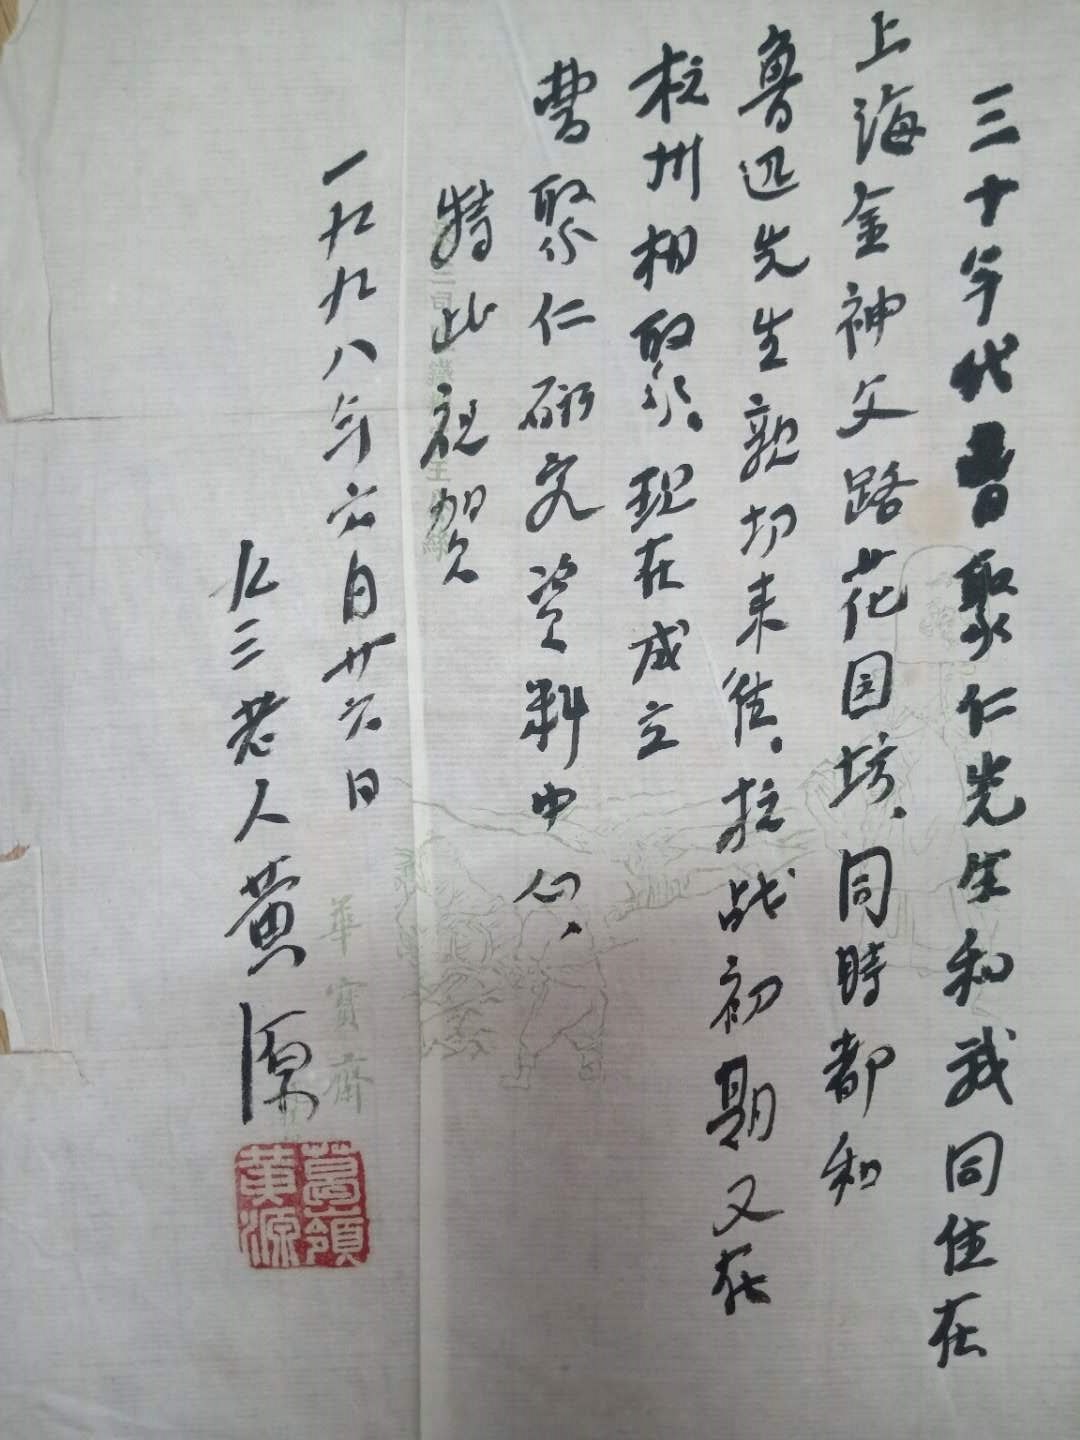 三十年代曹聚仁先生和我同住在
上海金神父路花园坊、同時都和
鲁迅先生親切来往。抗战初期又在
杭州相聚。现在成立
曹聚仁研究資料中心、
特此祝贺
一九九八年六月廿六日
九三老人黄源
葛嶺
黄源
華寶齋